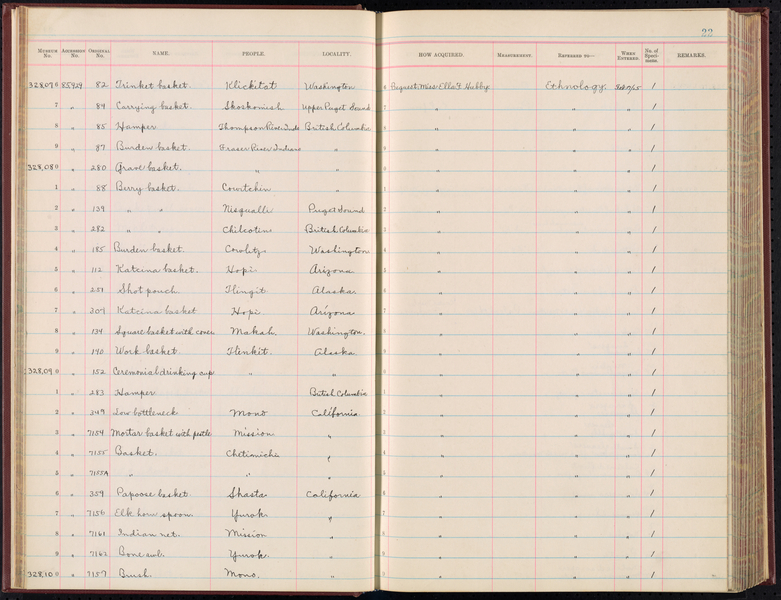 22
MUSEUM No. ACCESSION No. ORIGINAL No. NAME. PEOPLE. LOCALITY. HOW ACQUIRED. MEASUREMENT. REFERRED TO— WHEN ENTERED. No. of Specimens. REMARKS.
328,076 85929 82 Trinket basket Klickitat Washington 6 Bequest: Miss Ella F. Hubby Ethnology. /
7 " 84 Carrying basket. Skoskomish Upper Puget Sound 7 " " " /
8 " 85 Hamper Thompson River Inds British Columbia 8 " " " /
9 " 87 Burden basket. Fraser River Indians " 9 " " " /
328,080 " 280 Grave basket. " " 0 " " " /
1 " 88 Berry basket. Cowitchin " 1 " " " /
2 " 139 " " Nisqualli Puget Sound 2 " " " /
3 " 282 " " Chilcotins British Columbia 3 " " " /
4 " 185 Burden basket. Cowlitz Washington 4 " " " /
5 " 112 Katcina basket. Hopi Arizona 5 " " " /
6 " Shot pouch Tlingit Alaska 6 " " " /
7 " 307 Katcina basket Hopi Arizona 7 " " " /
8 " 134 Square basket with cover Makah Washington. 8 " " " /
9 " 140 Work basket. Tlenkit. Alaska 9 " " " /
328,090 " 152 Ceremonial drinking cup " " 0 " " " /
1 " 283 Hamper British Columbia 1 " " " /
2 " 349 Low bottleneck Mono California 2 " " " /
3 " 7154 Mortar basket with pestle Mission " 3 " " " /
4 " 7155 Basket. Chetimicha " 4 " " " /
5 " 7155A " " " 5 " " " /
6 " 359 Papoose basket Shasta California 6 " " " /
7 " 7156 Elk horn spoon. Yurok " 7 " " " /
8 " 7161 Indian net. Mission " 8 " " " /
9 " 7162 Bone awl. Yurok. " 9 " " " /
328,100 " 7157 Brush. Mono. " 0 " " " /